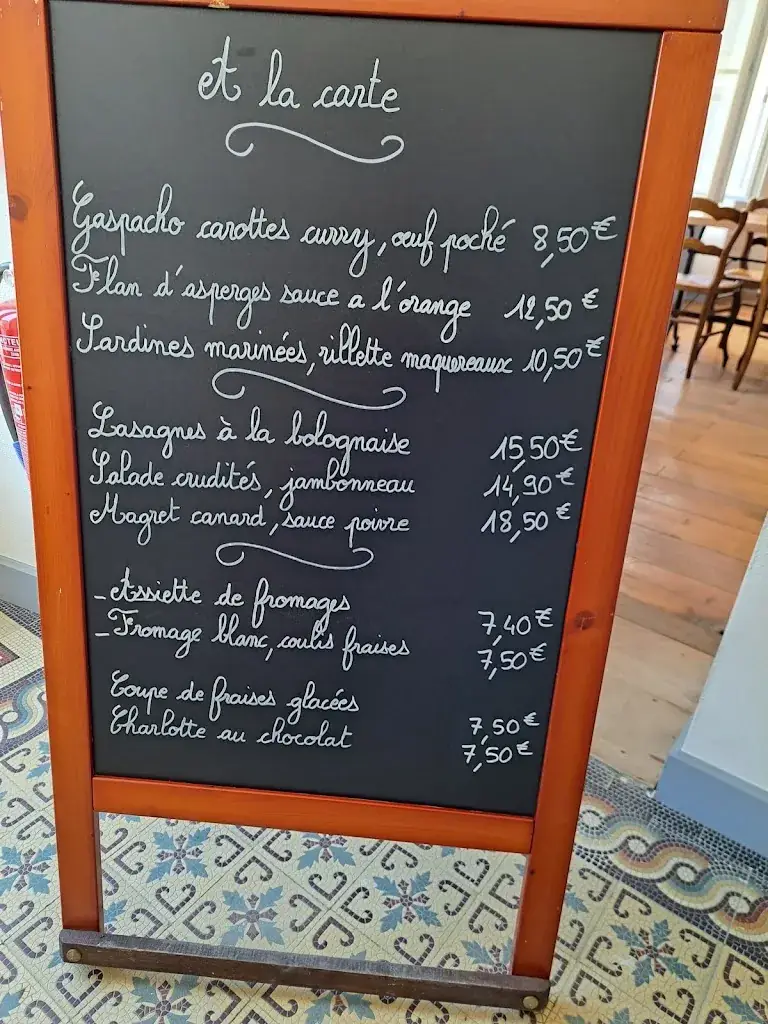 et la carte
Gaspacho carottes curry, œuf poché 8,50€
Flan d'asperges sauce a l'orange 12,50€
Sardines marinées, rillette maquereaux 10,50€
Lasagnes à la bolognaise 15,50€
Salade crudités, jambonneau 14,90€
Magret canard, sauce poivre 18,50€
- Assiette de fromages 7,40€
- Fromage blanc, coulis fraises 7,50€
Coupe de fraises glacées 7,50€
Charlotte au chocolat 7,50€